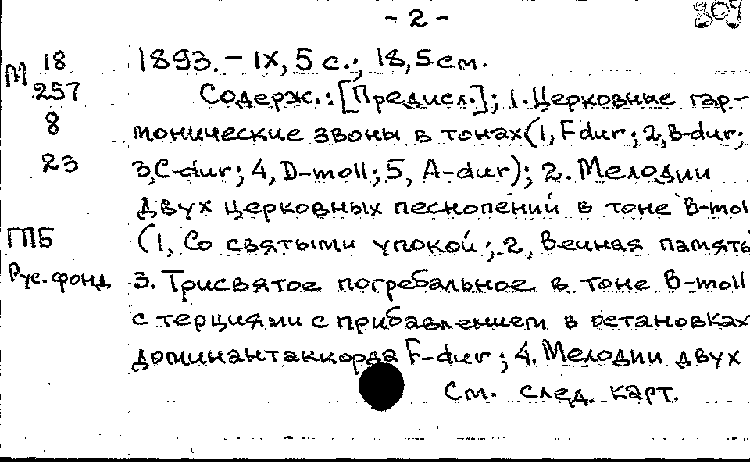 - 2 -
309
М 18
257
8
23
ГПБ
Рус. фонд
1893. - IX, 5 с.; 18,5 см.
Содерж.: [Предисл.]; 1. Церковные гар-
монические звоны в тонах (1, F dur; 2, B-dur;
3, C-dur; 4, D-moll; 5, A-dur); 2. Мелодии
двух церковных песнопений в тоне B-mol
(1, Со святыми упокой; 2, Вечная память
3. Трисвятое погребальное в тоне B-moll
с терциями с прибавлением в остановках
доминантаккорда F-dur; 4. Мелодии двух
См. след. карт.